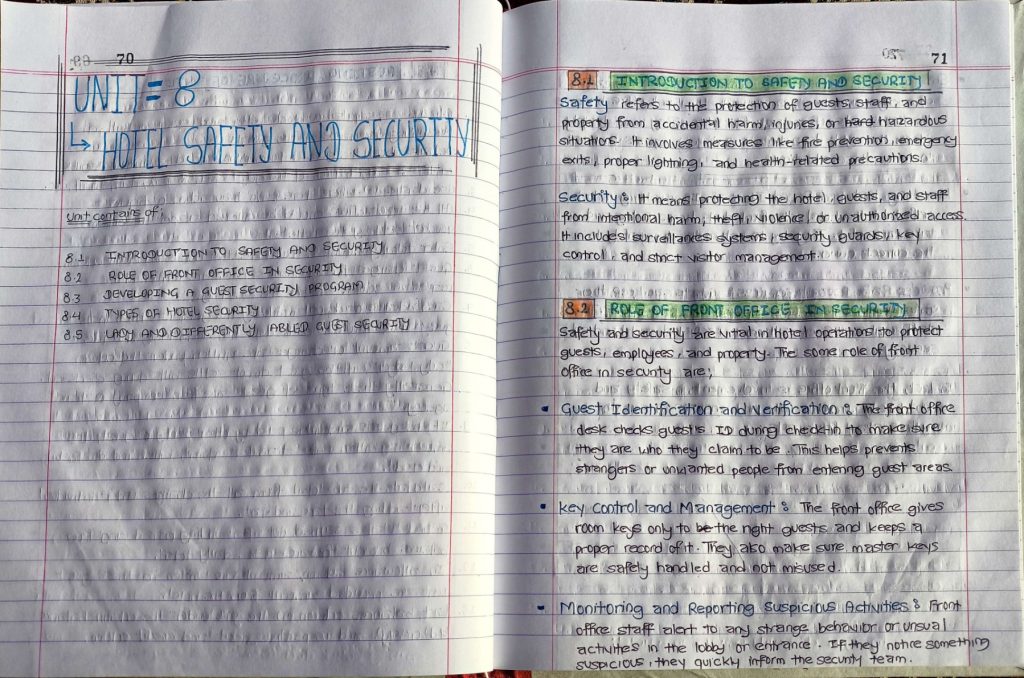 70
UNIT = 8
↳ HOTEL SAFETY AND SECURITY
Unit contains of;
8.1 INTRODUCTION TO SAFETY AND SECURITY
8.2 ROLE OF FRONT OFFICE IN SECURITY
8.3 DEVELOPING A GUEST SECURITY PROGRAM
8.4 TYPES OF HOTEL SECURITY
8.5 LADY AND DIFFERENTLY ABLED GUEST SECURITY
71
8.1 INTRODUCTION TO SAFETY AND SECURITY
Safety refers to the protection of guests, staff, and
property from accidental harm, injuries, or hard hazardous
situations. It involves measures like fire prevention, emergency
exits, proper lightning, and health-related precautions.
Security : It means protecting the hotel, guests, and staff
from intentional harm, theft, violence, or unauthorized access.
It includes surveillances systems, security guards, key
control, and strict visitor management.
8.2 ROLE OF FRONT OFFICE IN SECURITY
Safety and security are vital in hotel operations to protect
guests, employees, and property. The some role of front
office in security are;
• Guest Identification and Verification : The front office
desk checks guests ID during check-in to make sure
they are who they claim to be. This helps prevents
strangers or unwanted people from entering guest areas.
• Key Control and Management : The front office gives
room keys only to be the right guests and keeps a
proper record of it. They also make sure master keys
are safely handled and not misused.
• Monitoring and Reporting Suspicious Activities : Front
office staff alert to any strange behavior or unsual
activites in the lobby or entrance. If they notice something
suspicious, they quickly inform the security team.